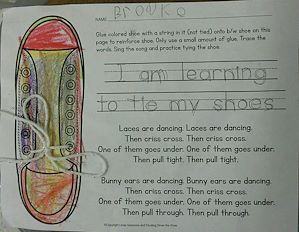 NAME Brooko
Glue colored shoe with a string in it (not tied) onto b/w shoe on this
page to reinforce shoe. Only use a small amount of glue. Trace the
words. Sing the song and practice tying the shoe.
I am learning
to tie my shoes
Laces are dancing. Laces are dancing.
Then criss cross. Then criss cross.
One of them goes under. One of them goes under.
Then pull tight. Then pull tight.
Bunny ears are dancing. Bunny ears are dancing.
Then criss cross. Then criss cross.
One of them goes under. One of them goes under.
Then pull through. Then pull through.